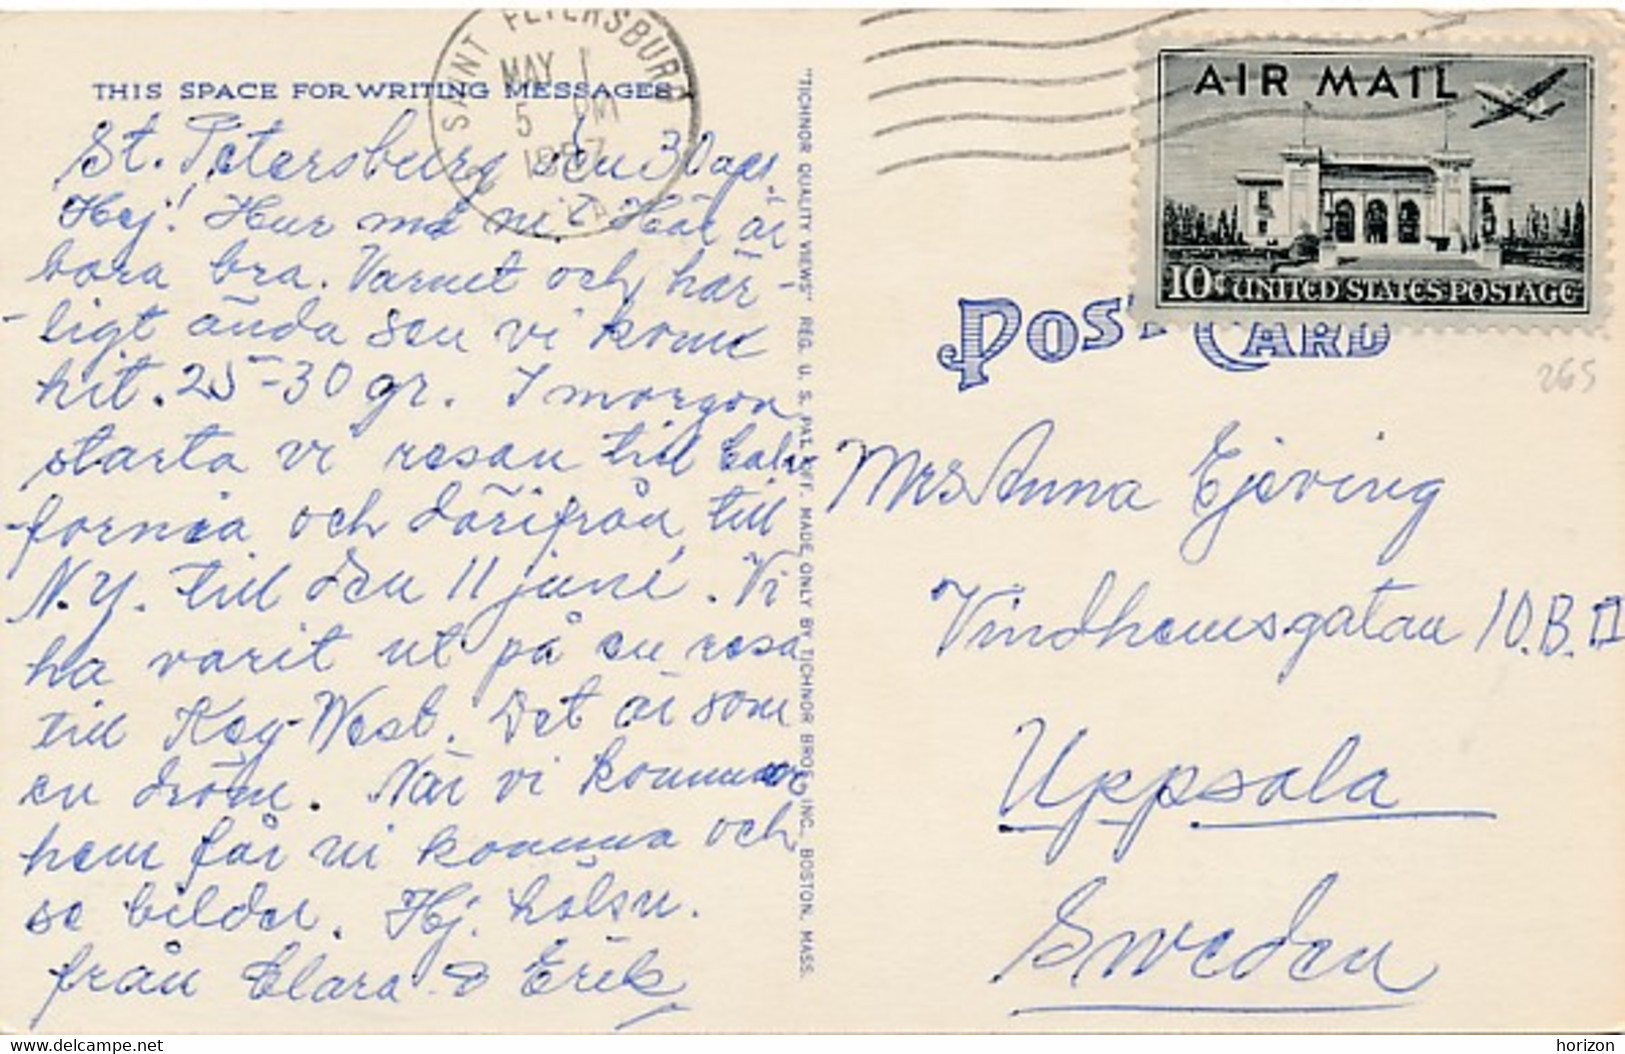 THIS SPACE FOR WRITING MESSAGES
St. Petersburg den 30 apr.
Hej! Hur må ni? Här är
bara bra. Varmt och här-
ligt ända sen vi kom
hit. 25-30 gr. I morgon
starta vi resan till Cali-
fornia och därifrån till
N.Y. till den 11 juni. Vi
ha varit ut på en resa
till Key-West. Det är som
en dröm. När vi kommer
hem får ni komma och
se bilder. Hj. hälsn.
från Clara & Erik
SAINT PETERSBURG
MAY 1
5 PM
1957
FLA
"TICHNOR QUALITY VIEWS" REG. U. S. PAT. OFF. MADE ONLY BY TICHNOR BROS., INC., BOSTON, MASS.
AIR MAIL
10¢ UNITED STATES POSTAGE
POST CARD
265
Mrs Anna Ejeving
Vindhemsgatan 10.B. II
Uppsala
Sweden
horizon